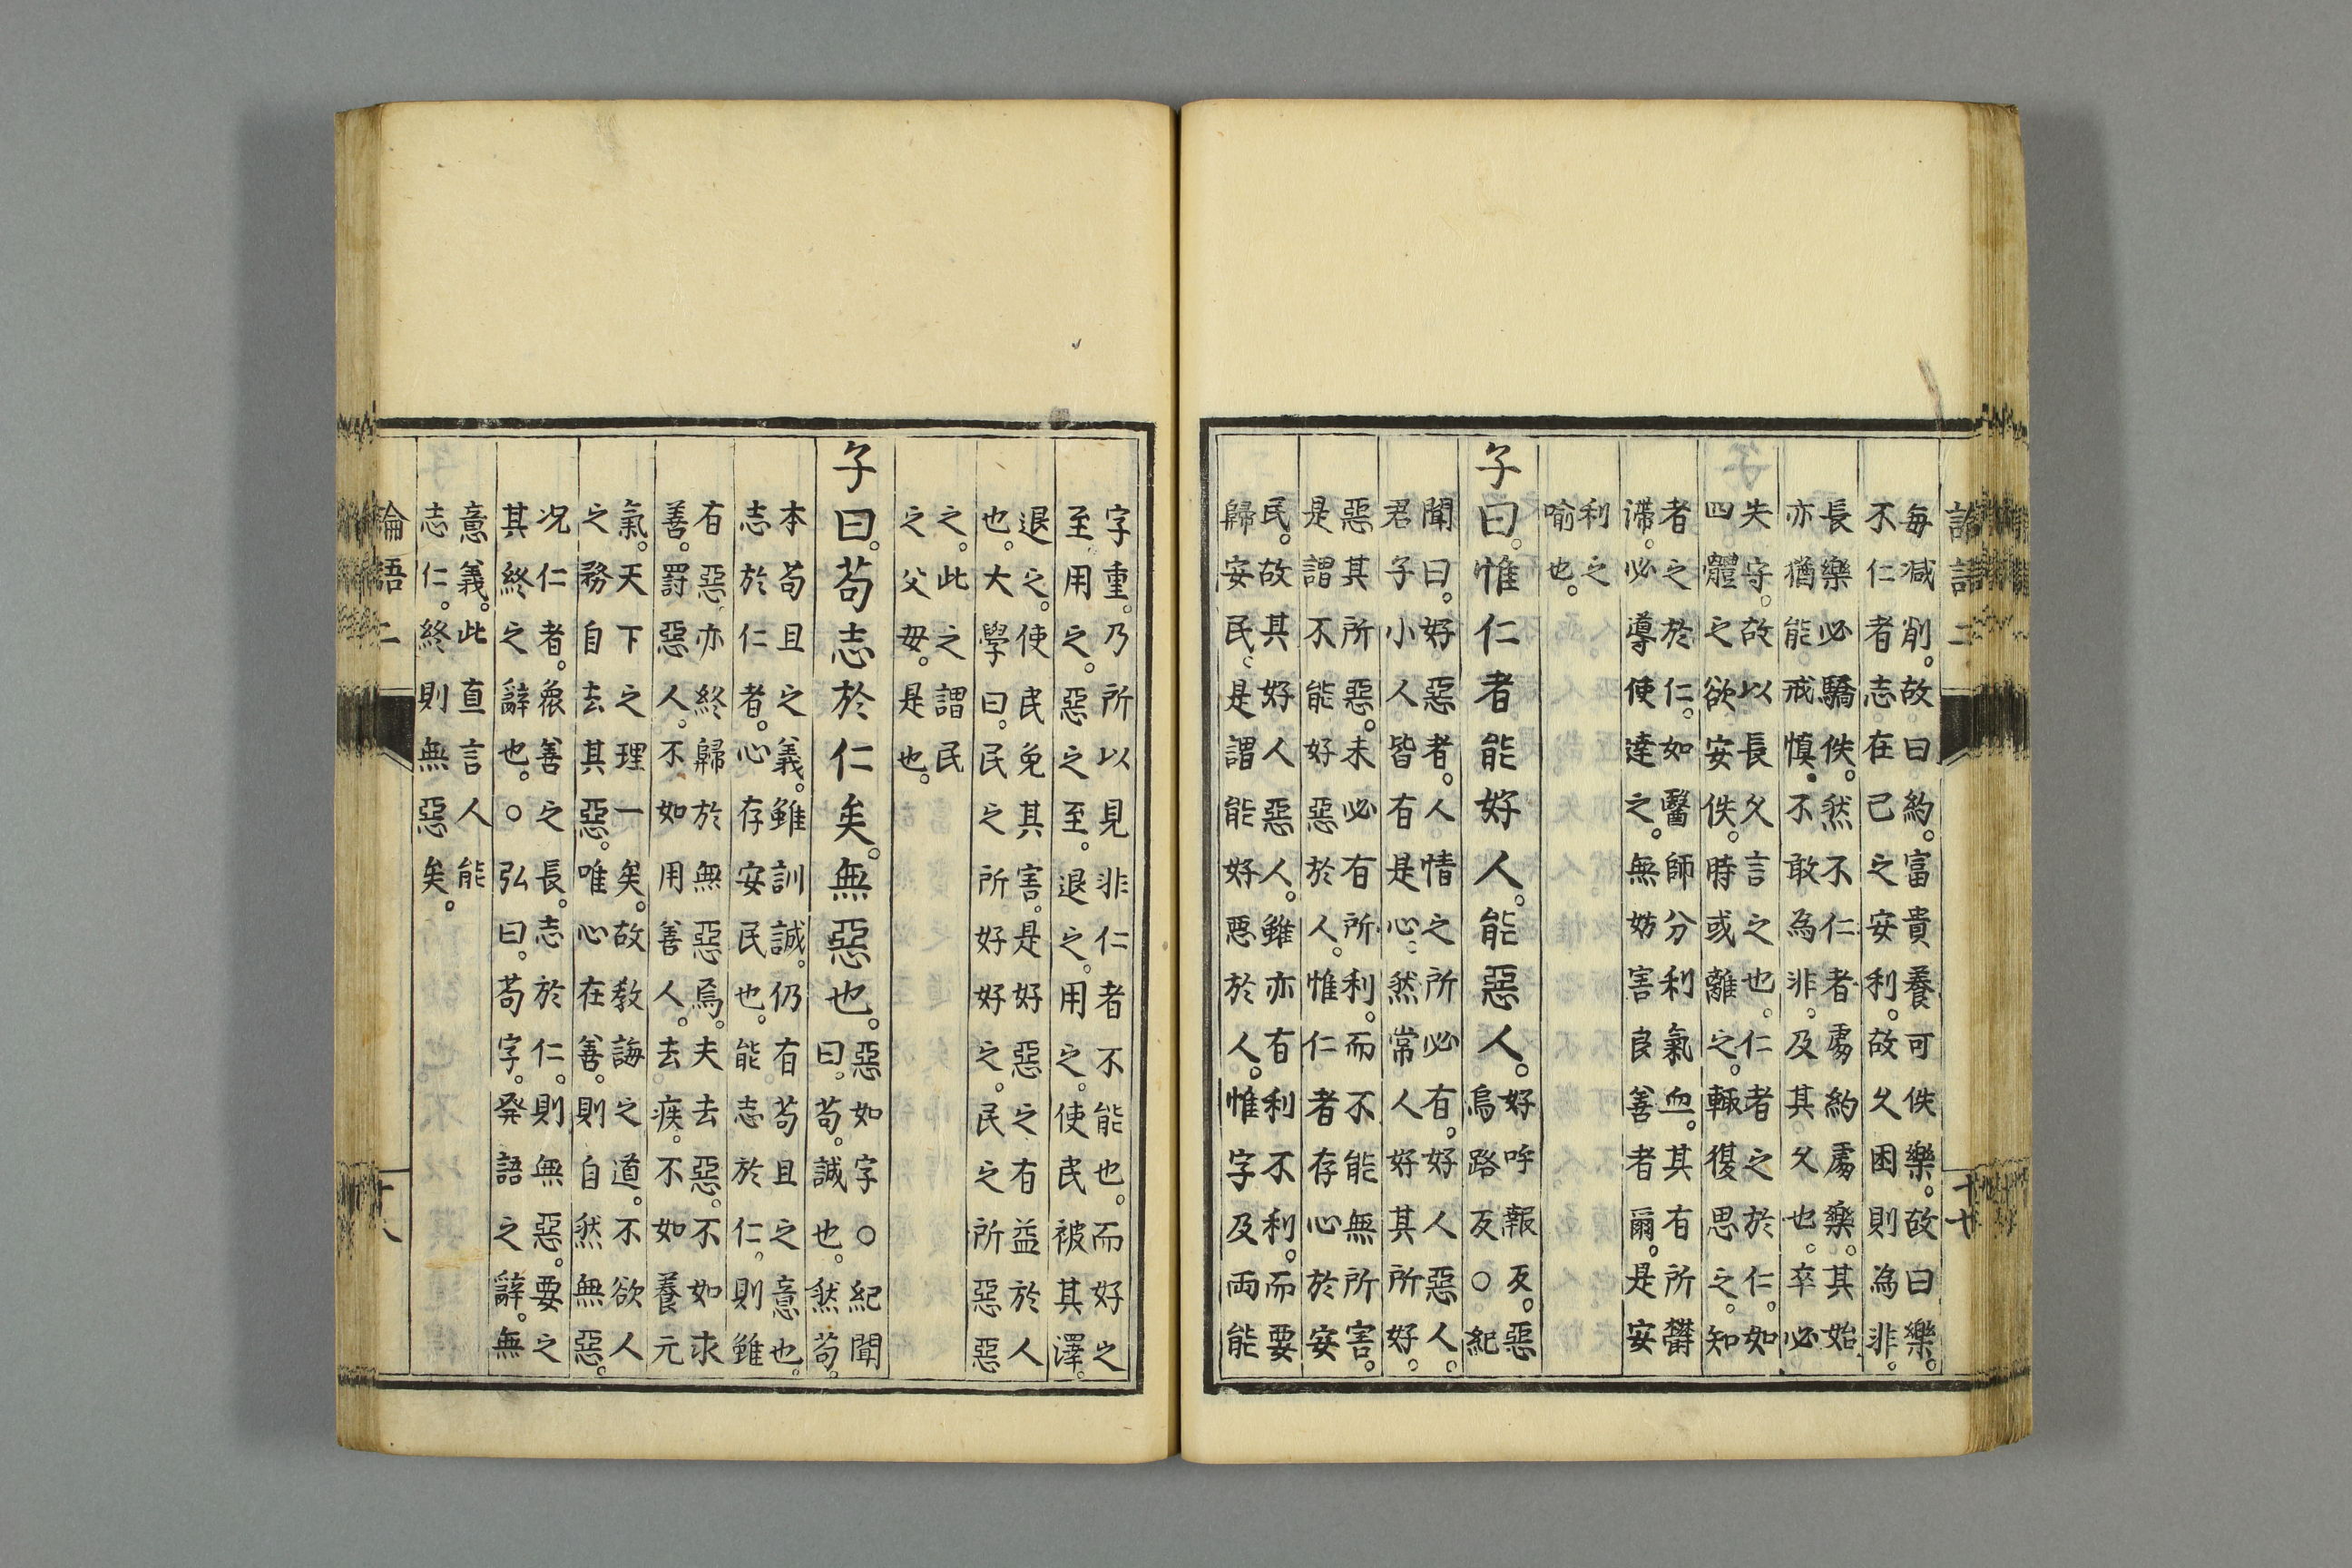 論語二
十七
每減削。故曰約。富貴養可佚樂。故曰樂。
不仁者志在已之安利。故久困則為非。
長樂必驕佚。然不仁者處約處樂。其始
亦猶能。戒慎。不敢為非。及其久也。卒必
失守。故以長久言之也。仁者之於仁。如
四體之欲安佚。時或離之。輒復思之。知
者之於仁。如醫師分利氣血。其有所鬱
滯。必導使達之。無妨害良善者爾。是安
利之
喻也。
子曰。惟仁者能好人。能惡人。
好呼報反。惡
烏路反○紀
聞曰。好惡者。人情之所必有。好人惡人。
君子小人。皆有是心。然常人好其所好。
惡其所惡。未必有所利。而不能無所害。
是謂不能好惡於人。惟仁者存心於安
民。故其好人惡人。雖亦有利不利。而要
歸安民。是謂能好惡於人。惟字及兩能
字重。乃所以見非仁者不能也。而好之
至。用之。惡之至。退之。用之。使民被其澤。
退之。使民免其害。是好惡之有益於人
也。大學曰。民之所好好之。民之所惡惡
之。此之謂民
之父母。是也。
子曰。苟志於仁矣。無惡也。
惡如字○紀聞
曰。苟。誠也。然苟。
本苟且之義。雖訓誠。仍有苟且之意也。
志於仁者。心存安民也。能志於仁。則雖
有惡亦終歸於無惡焉。夫去惡。不如求
善。罰惡人。不如用善人。去疾。不如養元
氣。天下之理一矣。故教誨之道。不欲人
之務自去其惡。唯心在善。則自然無惡。
況仁者。衆善之長。志於仁。則無惡。要之
其終之辭也。○弘曰。苟字。発語之辭。無
意義。此直言人能
志仁。終則無惡矣。
論語二
十八